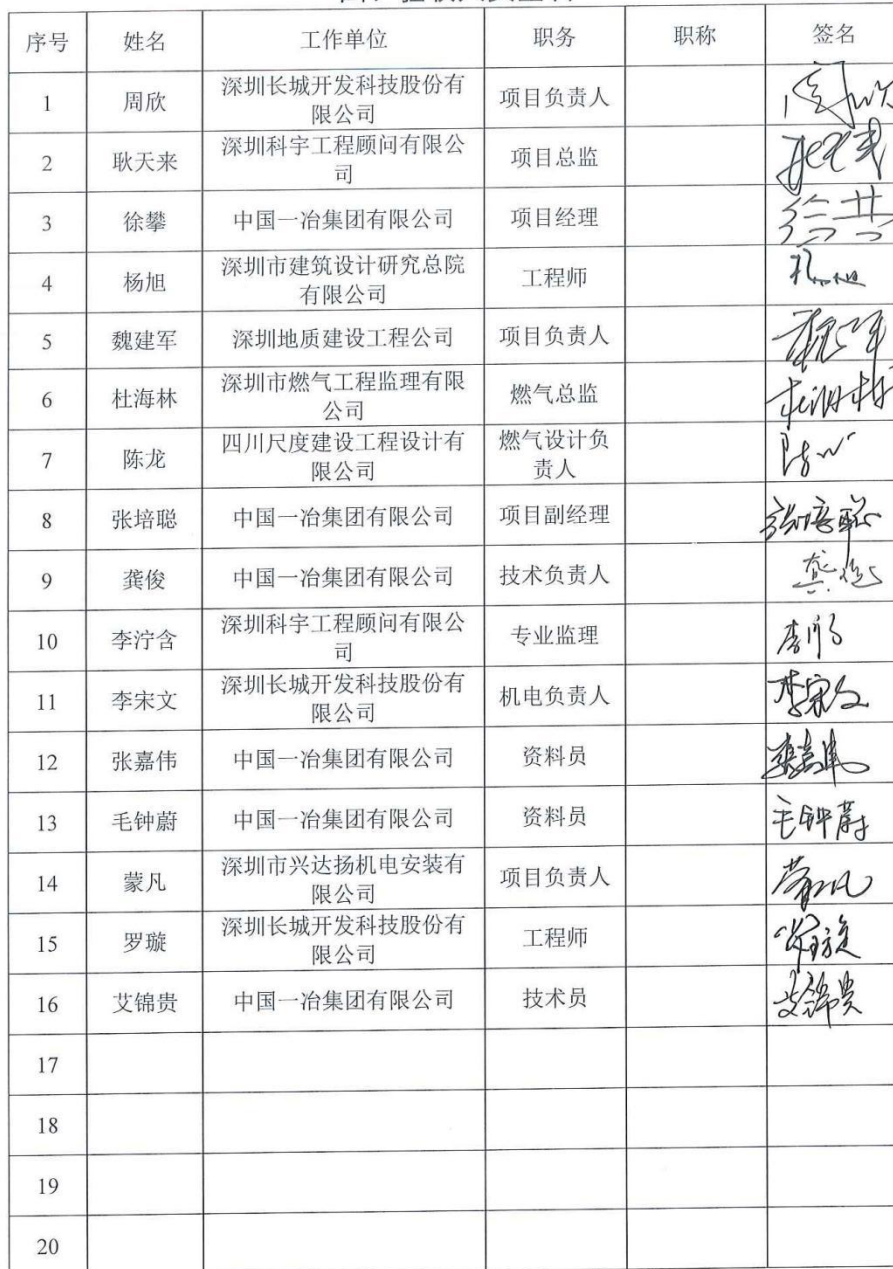 序号 姓名 工作单位 职务 职称 签名
1 周欣 深圳长城开发科技股份有 项目负责人
限公司
2 耿天来 深圳科宇工程顾问有限公 项目总监
司
3 徐攀 中国一冶集团有限公司 项目经理
4 杨旭 深圳市建筑设计研究总院 工程师
有限公司
5 魏建军 深圳地质建设工程公司 项目负责人
6 杜海林 深圳市燃气工程监理有限 燃气总监
公司
7 陈龙 四川尺度建设工程设计有 燃气设计负
限公司 责人
8 张培聪 中国一冶集团有限公司 项目副经理 张培聪
9 龚俊 中国一冶集团有限公司 技术负责人
10 李泞含 深圳科宇工程顾问有限公 专业监理
司
11 李宋文 深圳长城开发科技股份有 机电负责人 李宋文
限公司
12 张嘉伟 中国一冶集团有限公司 资料员
13 毛钟蔚 中国一冶集团有限公司 资料员 毛钟蔚
14 蒙凡 深圳市兴达扬机电安装有 项目负责人
限公司
15 罗璇 深圳长城开发科技股份有 工程师
限公司
16 艾锦贵 中国一冶集团有限公司 技术员 艾锦贵
17
18
19
20